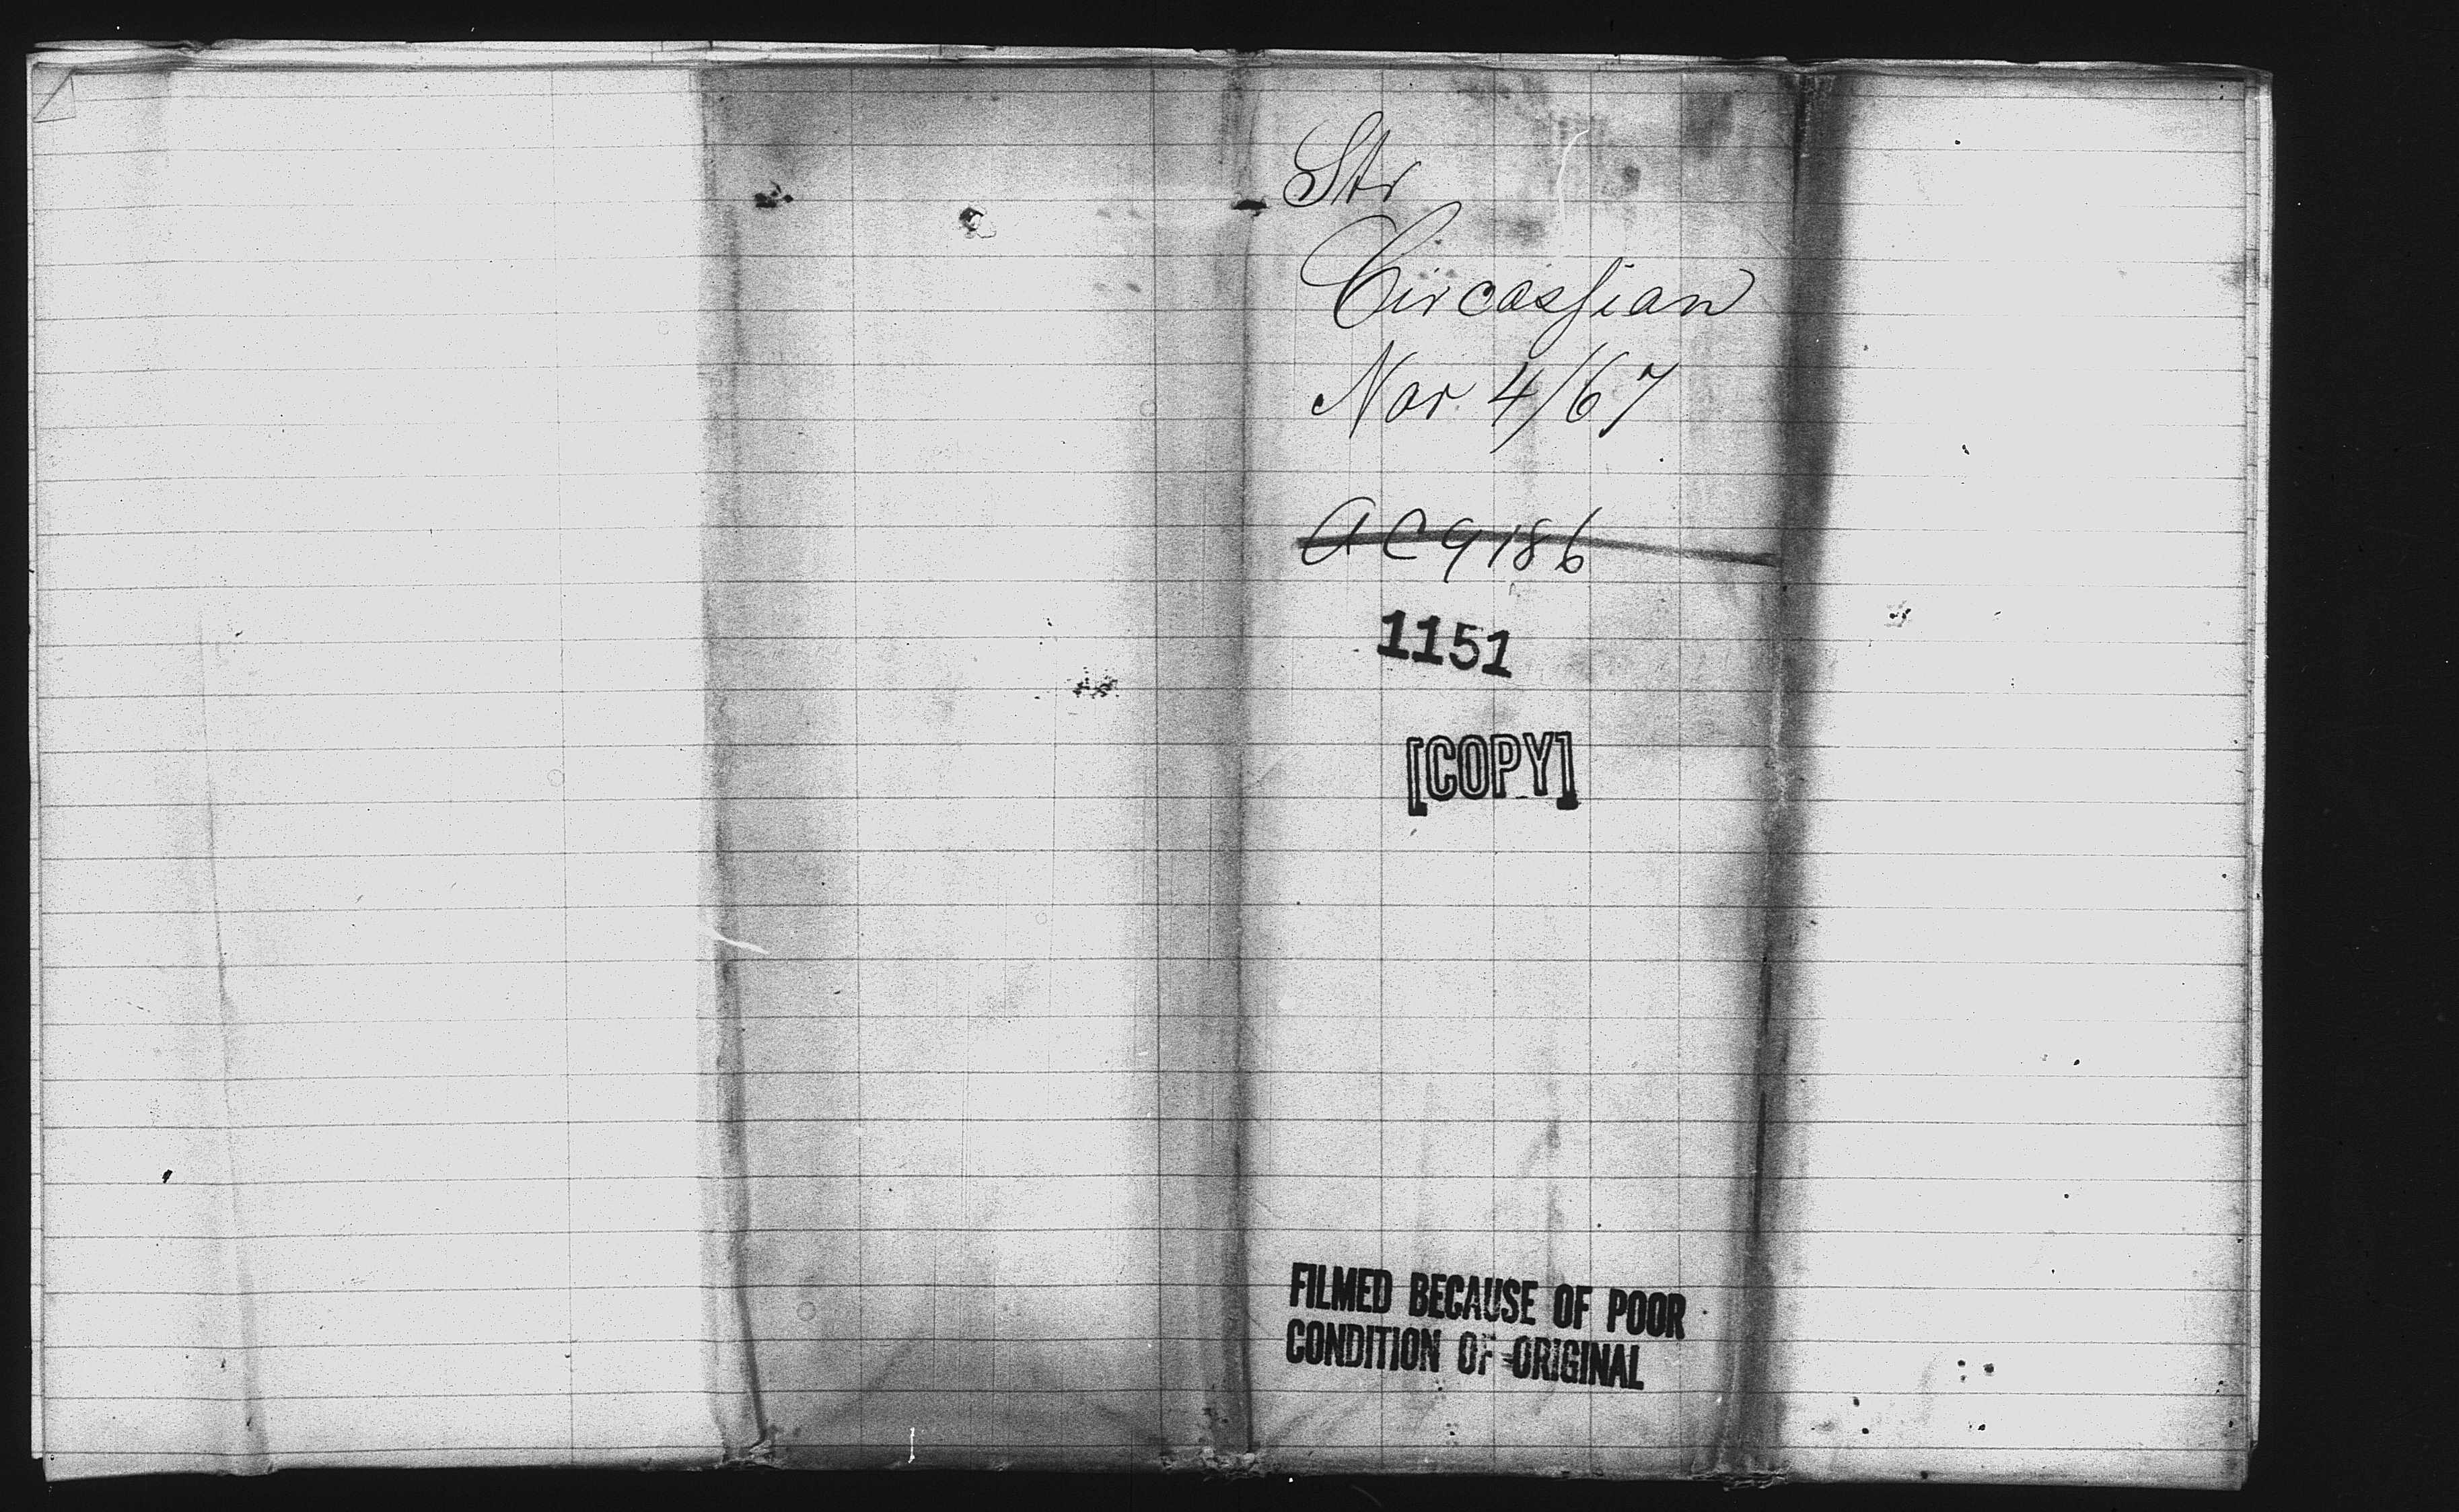 Str
Circassian
Nov 4/67
AC 9186
1151
[COPY]
FILMED BECAUSE OF POOR
CONDITION OF ORIGINAL